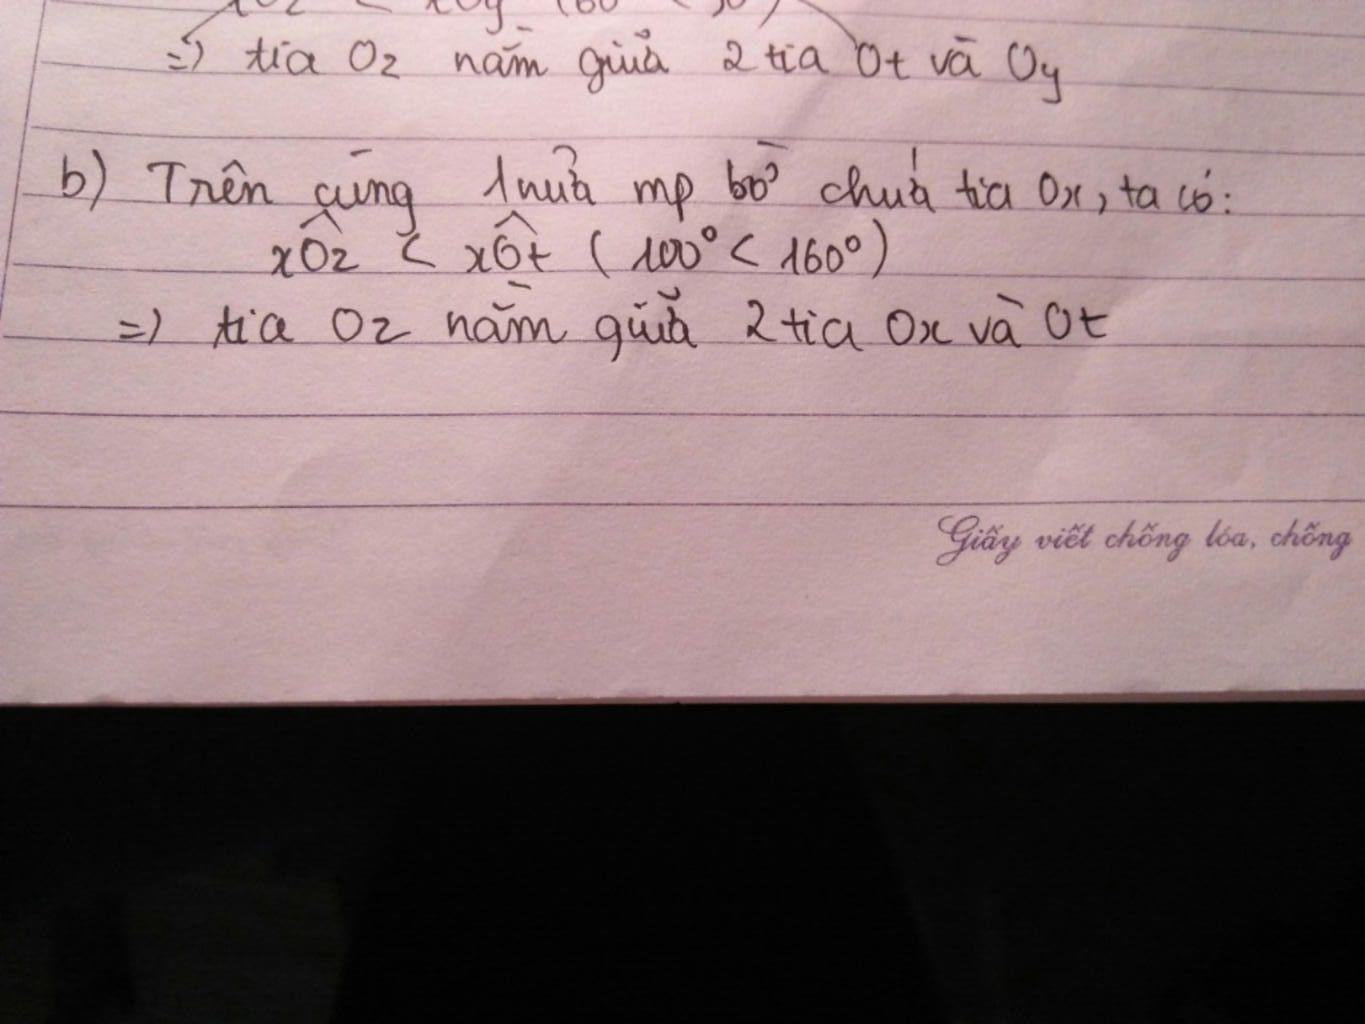 => tia Oz nằm giữa 2 tia Ot và Oy
b) Trên cùng 1 nửa mp bờ chứa tia Ox, ta có:
xÔz < xÔt ( 100° < 160° )
=> tia Oz nằm giữa 2 tia Ox và Ot
Giấy viết chống lóa, chống